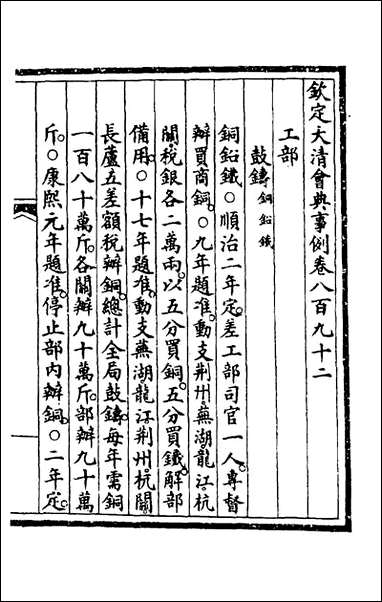 欽定大清會典事例卷八百九十二
工部
鼓鑄銅鉛鐵
銅鉛鐵○順治二年定差工部司官一人專督
辦買商銅○九年題准動支荊州蕪湖龍江杭
關稅銀各二萬兩以五分買銅五分買鐵解部
備用○十七年題准動支蕪湖龍江荊州杭關
長蘆五差額稅辦銅總計全局鼓鑄每年需銅
一百八十萬斤各關辦九十萬斤部辦九十萬
斤○康熙元年題准停止部內辦銅○二年定